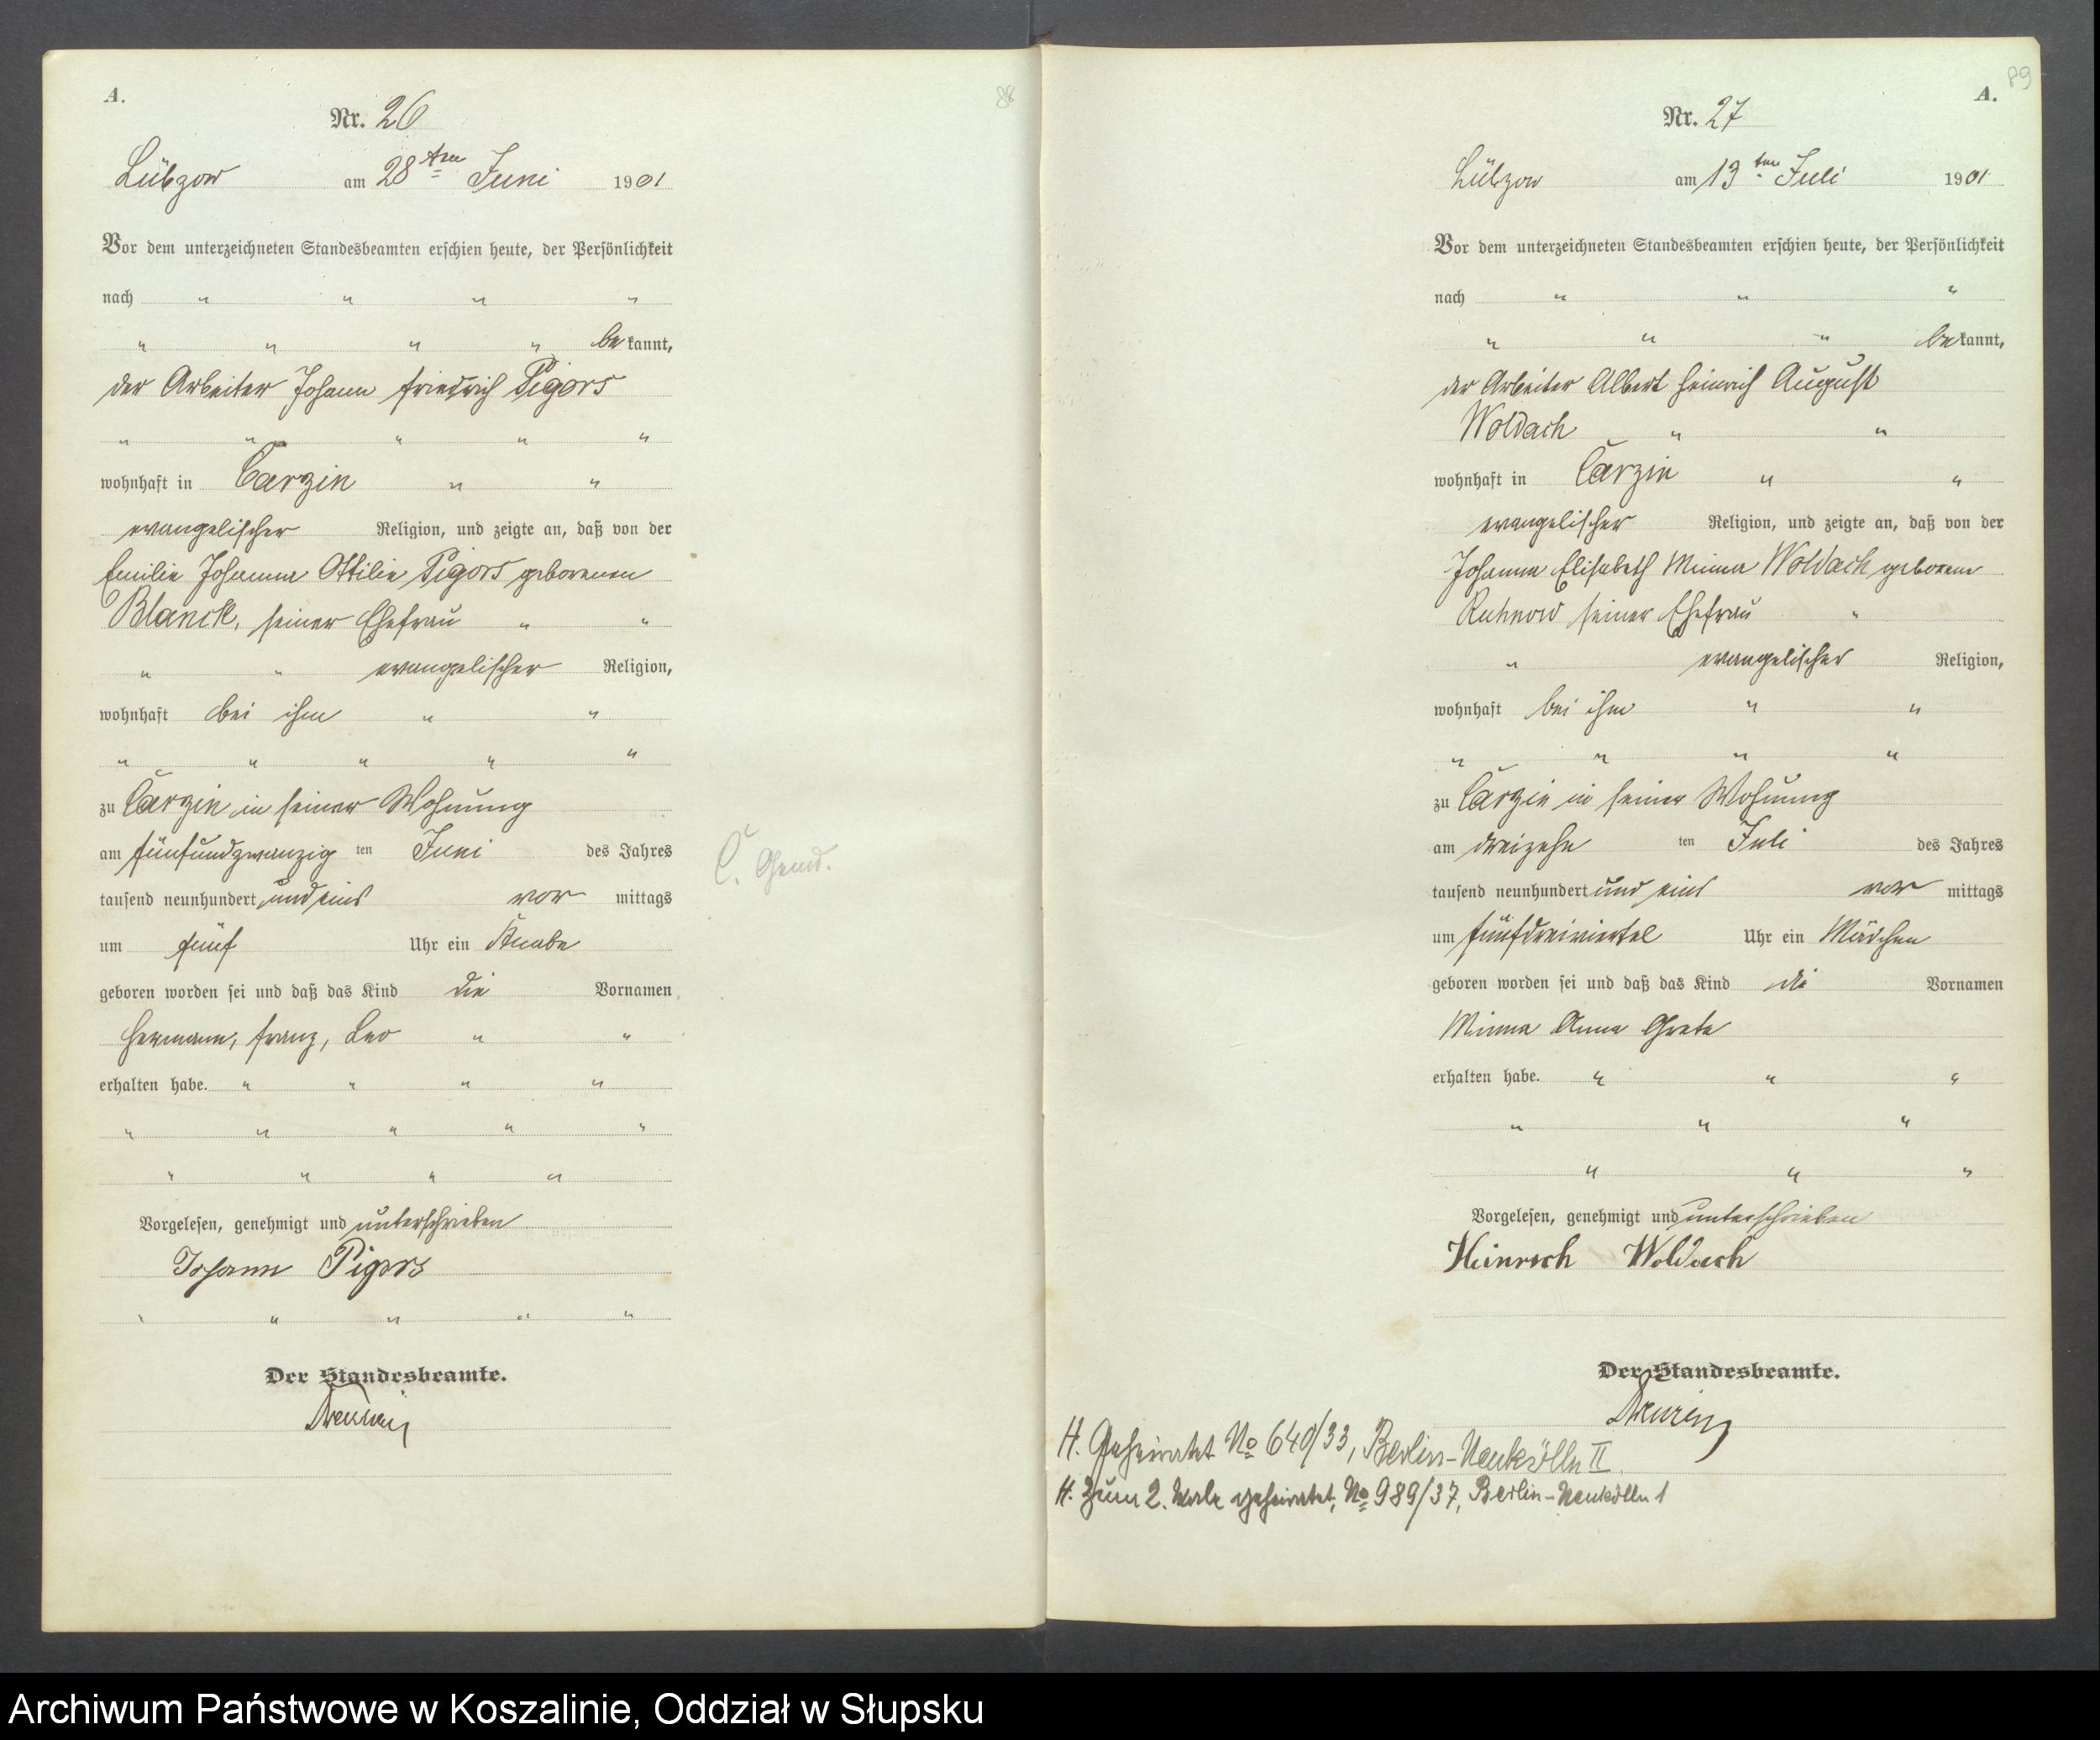 A.
88
Nr. 26
Lübzow am 28ten Juni 1901
Vor dem unterzeichneten Standesbeamten erschien heute, der Persönlichkeit
nach " " " "
" " " " bekannt,
der Arbeiter Johann Friedrich Pigors
" " " " "
wohnhaft in Carzin " "
evangelischer Religion, und zeigte an, daß von der
Emilie Johanna Ottilie Pigors geborenen
Blanck, seiner Ehefrau " "
" " evangelischer Religion,
wohnhaft bei ihm " "
" " " " "
zu Carzin in seiner Wohnung
am fünfundzwanzig ten Juni des Jahres
tausend neunhundert und eins vor mittags
um fünf Uhr ein Knabe
geboren worden sei und daß das Kind die Vornamen
Hermann, Franz, Leo " "
erhalten habe. " " " "
" " " " "
" " " "
Vorgelesen, genehmigt und unterschrieben
Johann Pigors
" " " " "
Der Standesbeamte.
89
A.
Nr. 27
Lübzow am 13ten Juli 1901
Vor dem unterzeichneten Standesbeamten erschien heute, der Persönlichkeit
nach " " "
" " " bekannt,
der Arbeiter Albert Heinrich August
Woldach " "
wohnhaft in Carzin " "
evangelischer Religion, und zeigte an, daß von der
Johanna Elisabeth Minna Woldach geborene
Ruhnow seiner Ehefrau "
" evangelischer Religion,
wohnhaft bei ihm " "
" " " "
zu Carzin in seiner Wohnung
am dreizehn ten Juli des Jahres
tausend neunhundert und eins vor mittags
um fünfdreiviertel Uhr ein Mädchen
geboren worden sei und daß das Kind die Vornamen
Minna Anna Grete
erhalten habe. " " "
" " "
" " "
Vorgelesen, genehmigt und unterschrieben
Heinrich Woldach
Der Standesbeamte.
H. Geheiratet No 640/33, Berlin-Neukölln II
H. Zum 2. Male geheiratet, No 989/37, Berlin-Neukölln 1
Archiwum Państwowe w Koszalinie, Oddział w Słupsku